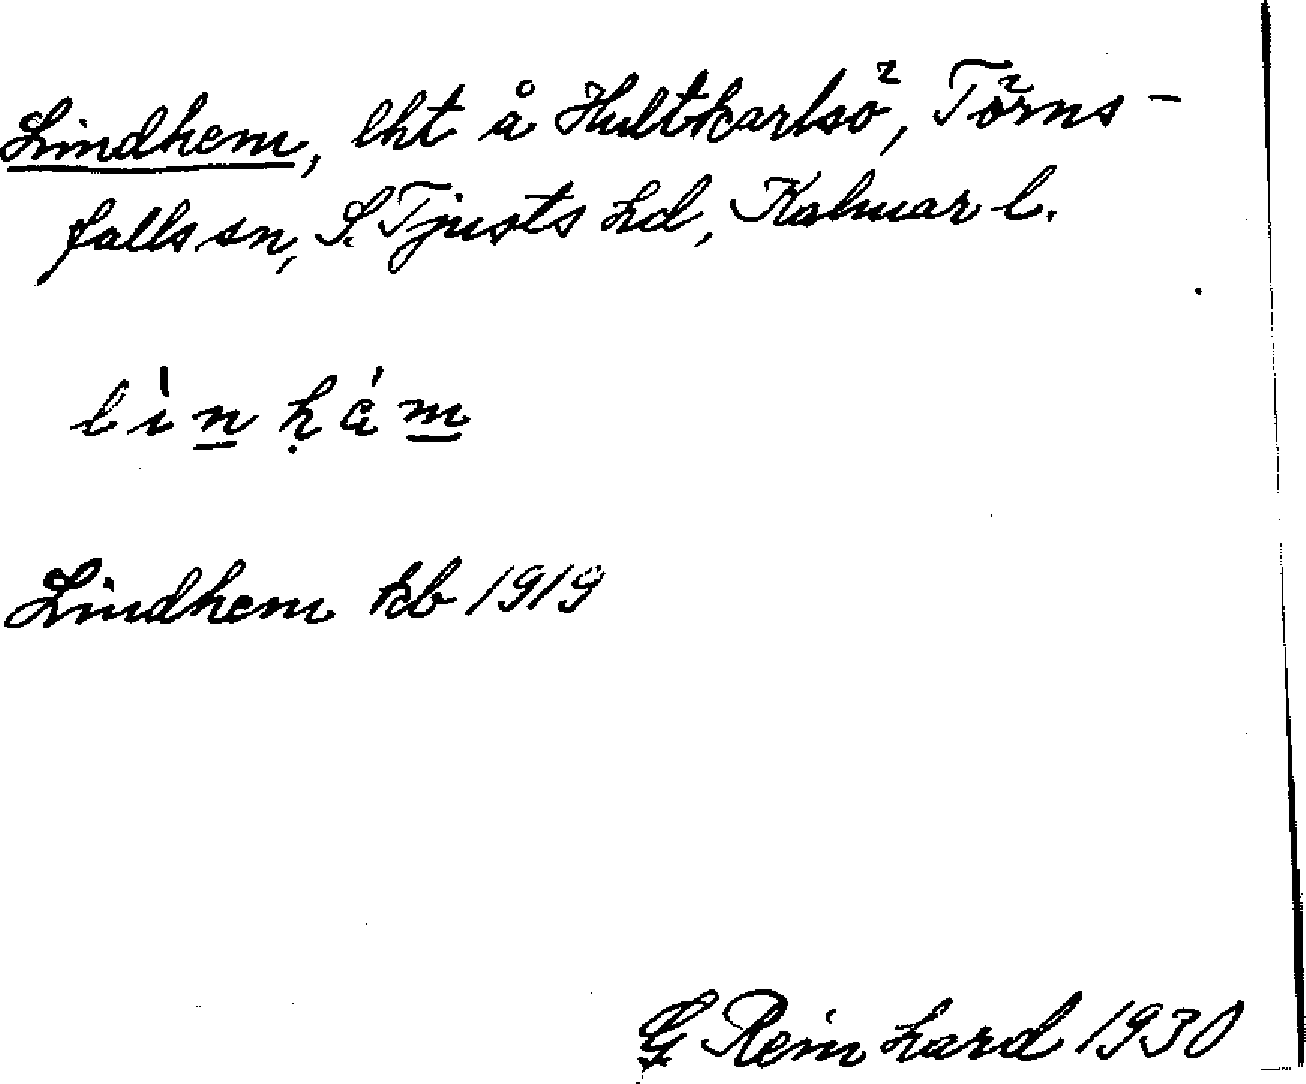 Lindhem, lht å Hultkarlsö, Törns-
falls sn, S. Tjusts hd, Kalmar l.
lìnḥám
Lindhem kb 1919
G Reinhard 1930